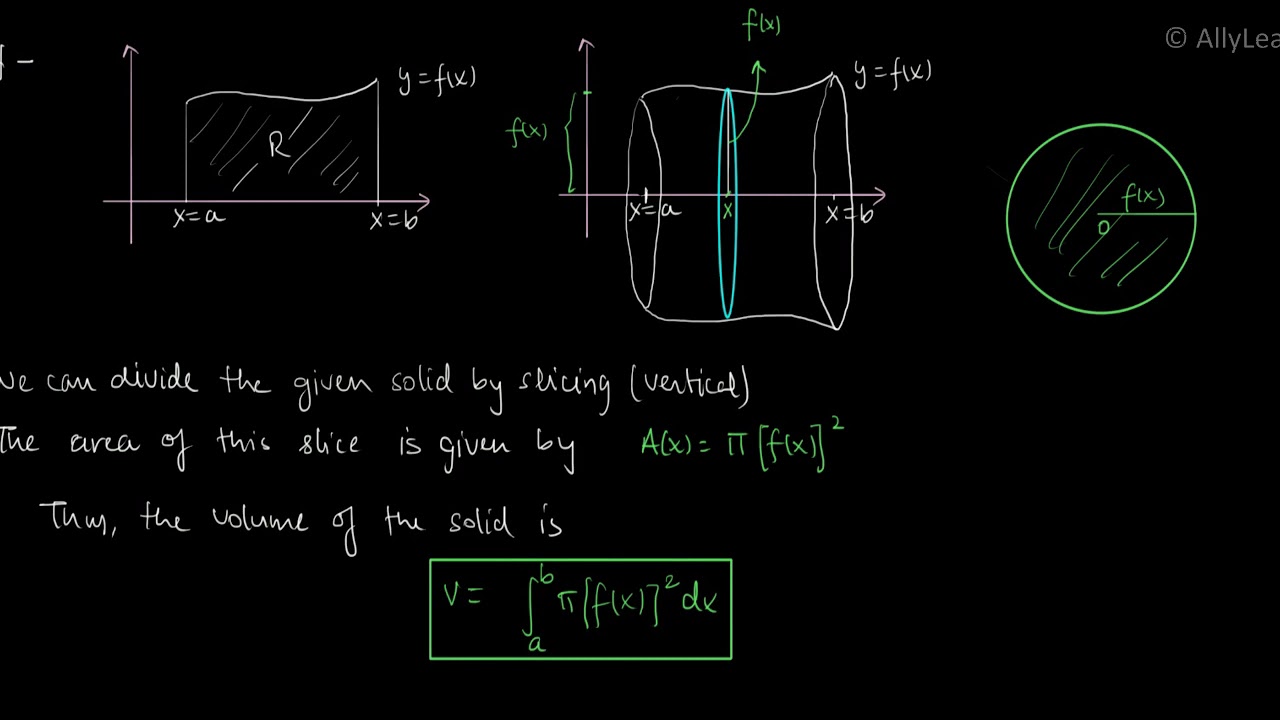 f(x)
© AllyLea
y = f(x)
y = f(x)
f(x)
R
f(x)
O
x = a
x = b
x = a
x
x = b
we can divide the given solid by slicing (vertical)
The area of this slice is given by A(x) = π[f(x)]²
Thus, the volume of the solid is
V = ∫ₐᵇ π[f(x)]² dx